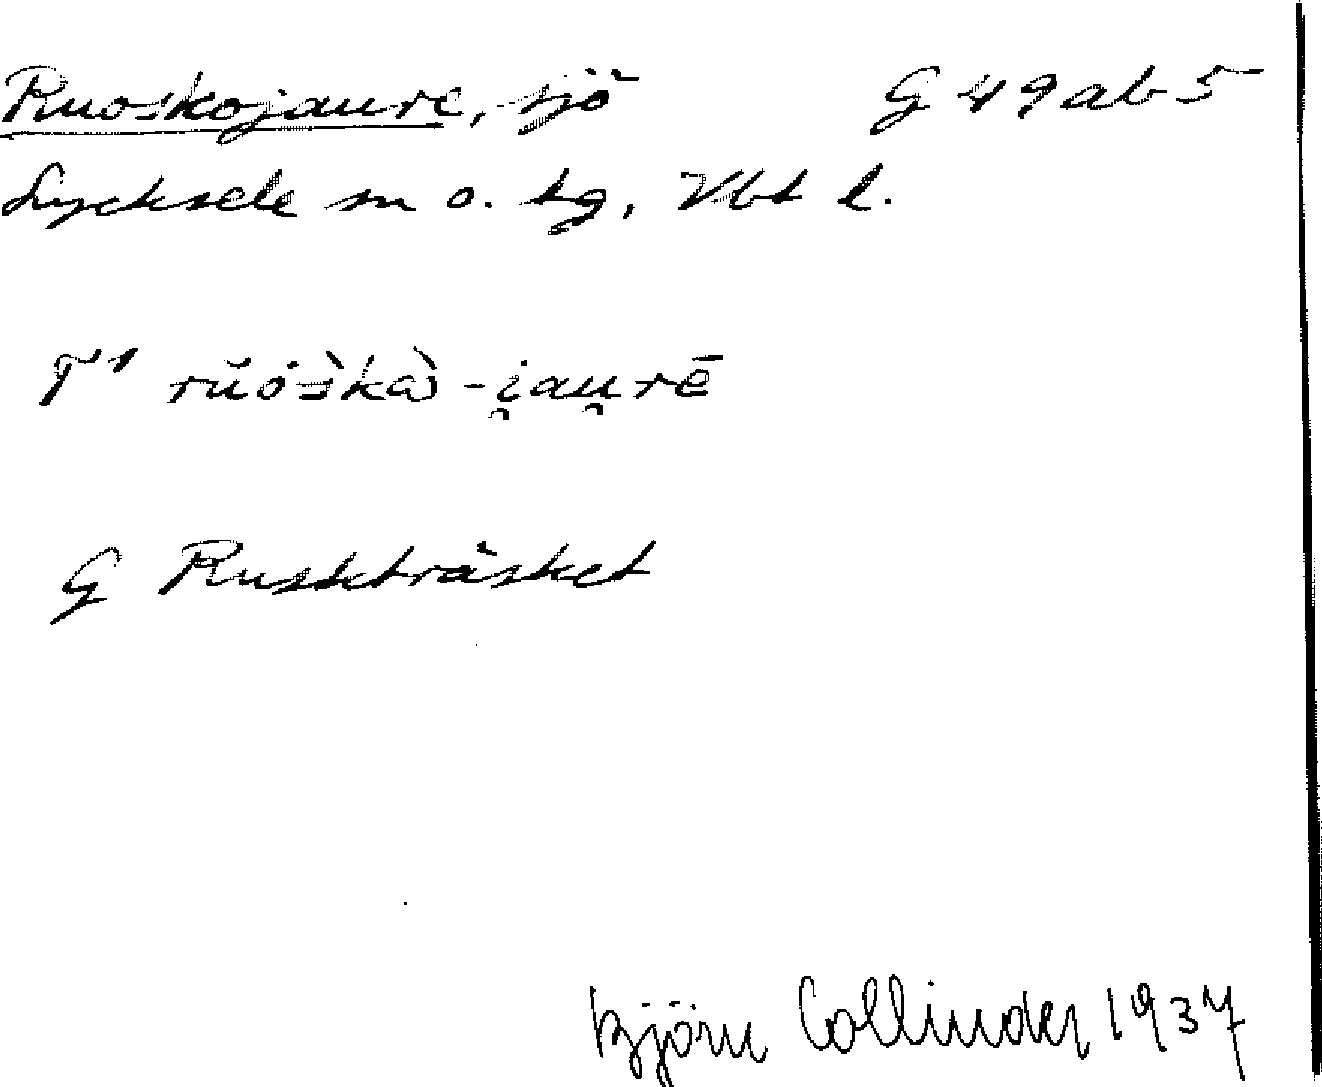 Ruoskojaure, sjö G 49ab5
Lycksele sn o. tg, Vbt l.
T¹ rŭȯškȧ̀-i̯au̯rē
GRuskträsket
Björn Collinder 1937